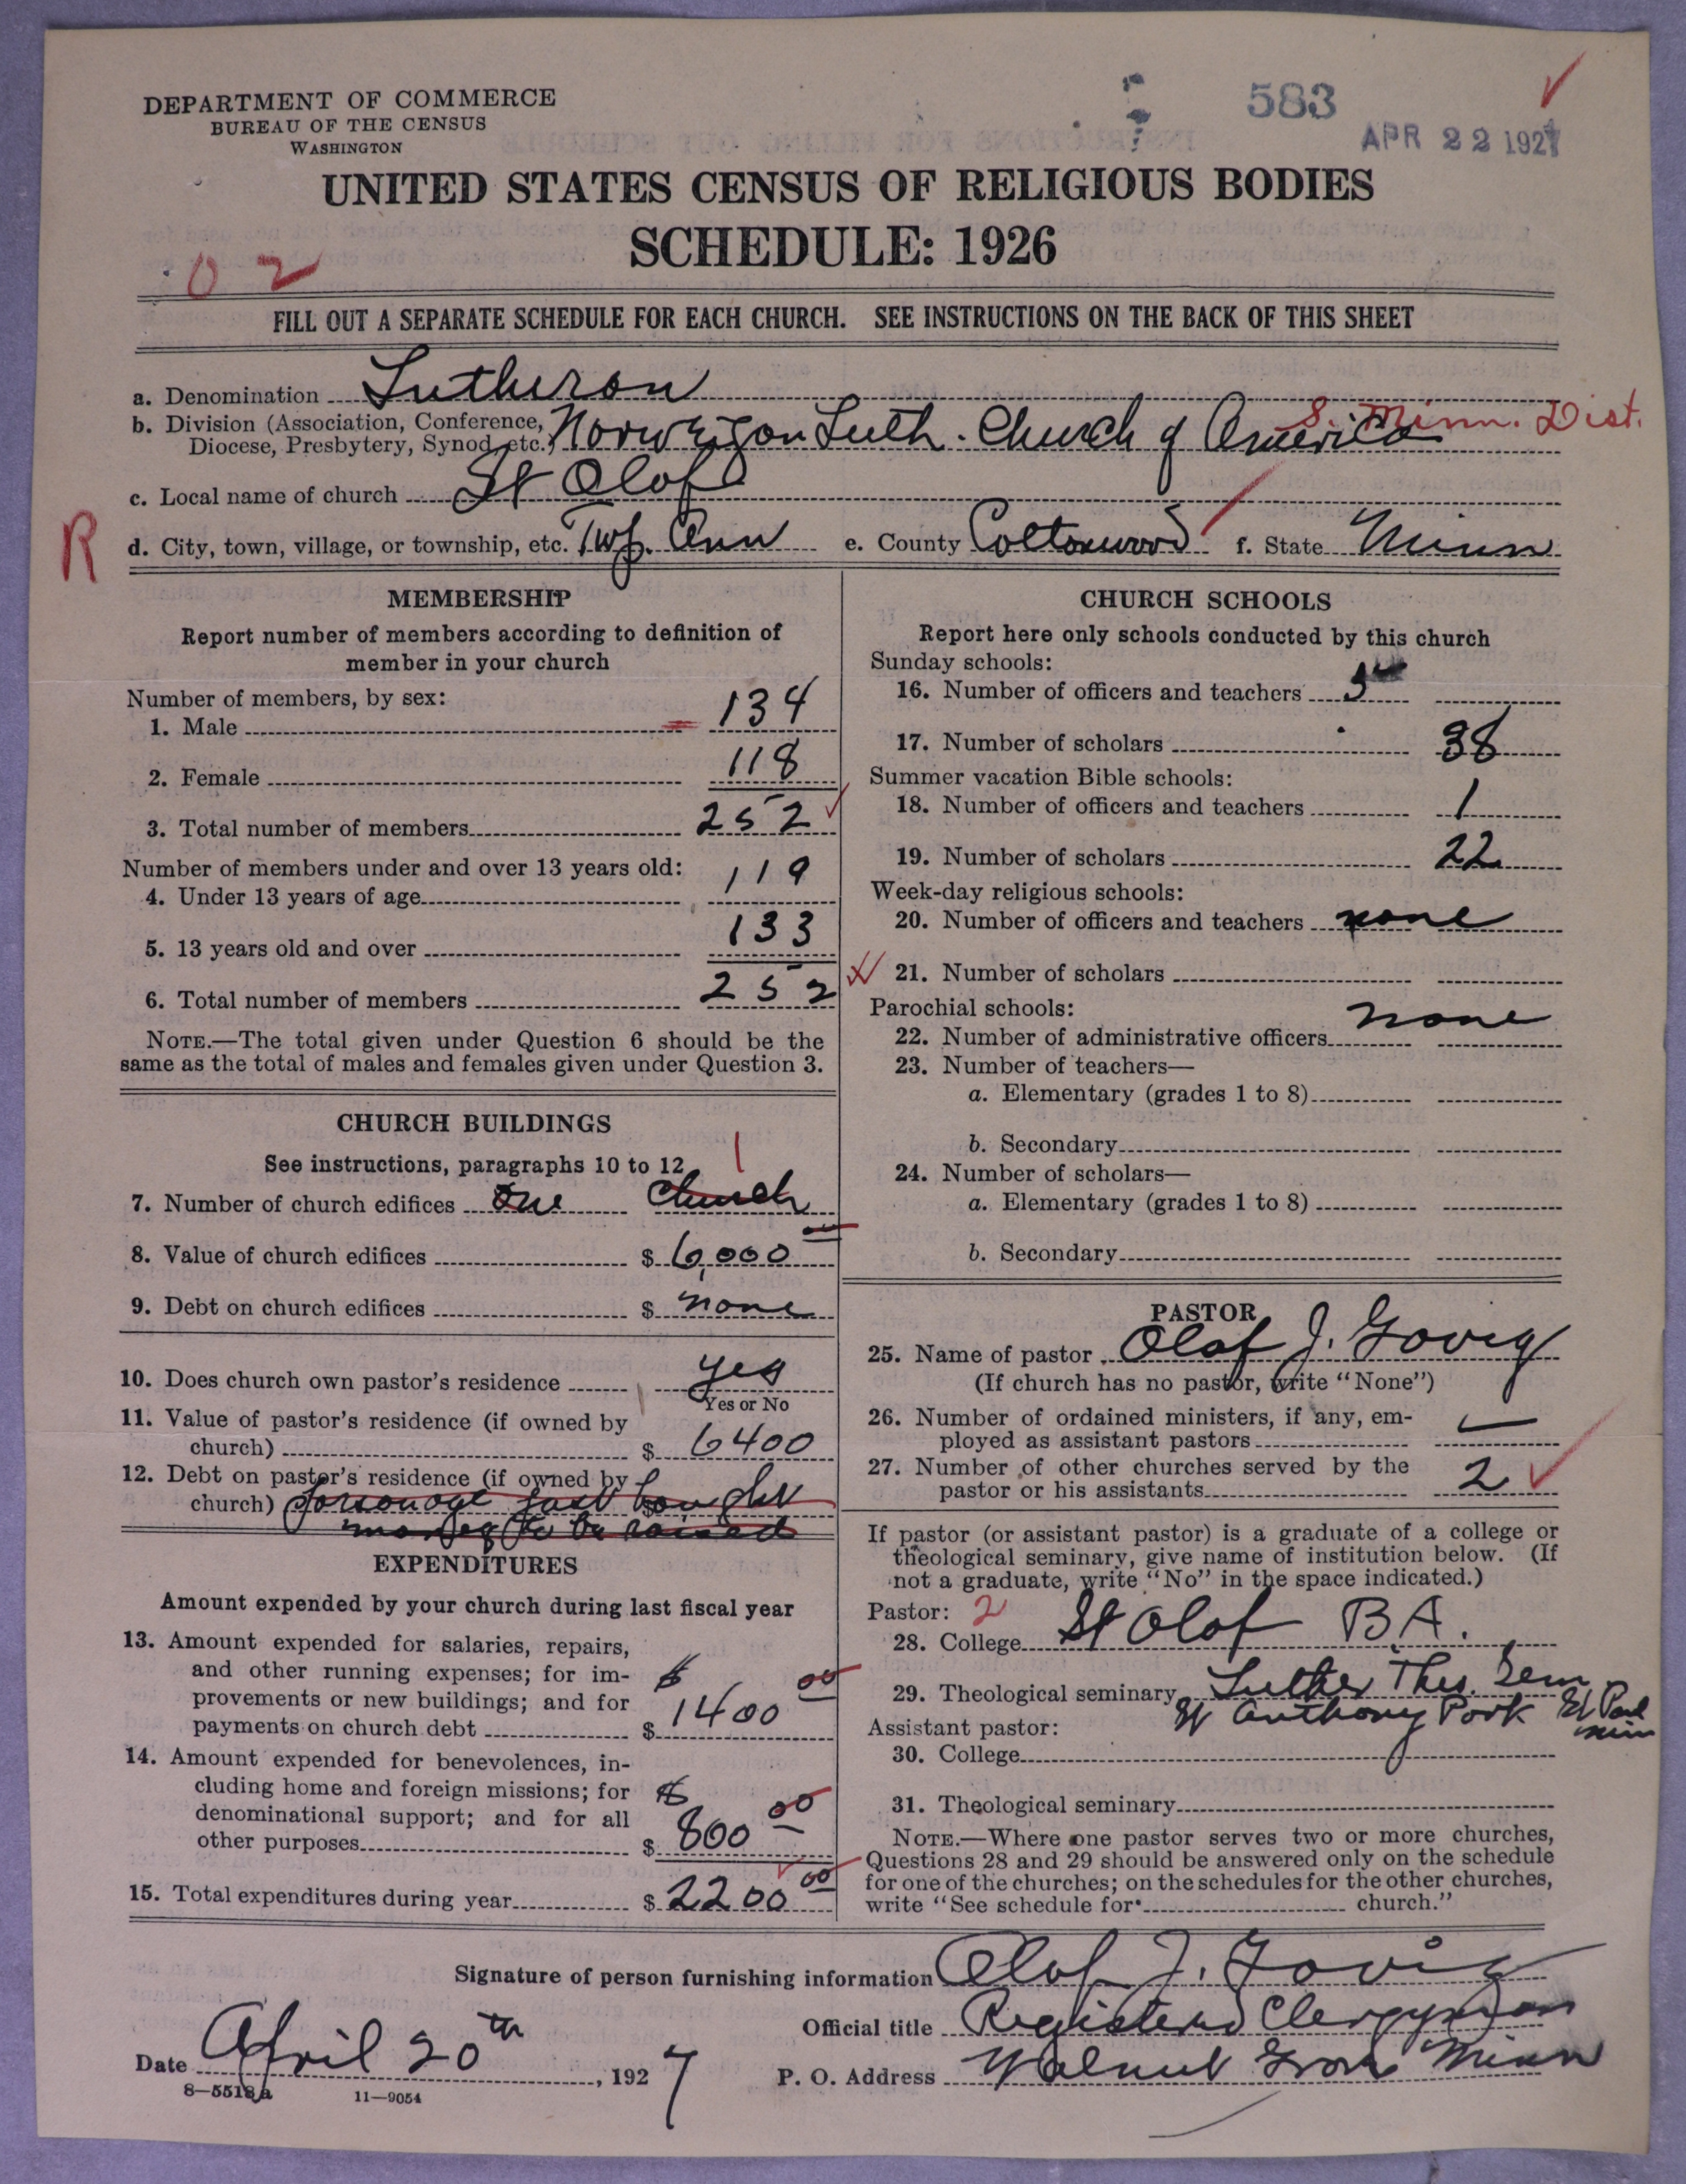 DEPARTMENT OF COMMERCE
BUREAU OF THE CENSUS
WASHINGTON
583
APR 22 1927
UNITED STATES CENSUS OF RELIGIOUS BODIES
SCHEDULE: 1926
02
FILL OUT A SEPARATE SCHEDULE FOR EACH CHURCH. SEE INSTRUCTIONS ON THE BACK OF THIS SHEET
a. Denomination Lutheran
b. Division (Association, Conference, Diocese, Presbytery, Synod, etc.) Norwegian Luth. Church of America S. Minn. Dist.
c. Local name of church St Olof
R
d. City, town, village, or township, etc. Twp. Ann e. County Cottonwood f. State Minn
MEMBERSHIP
Report number of members according to definition of
member in your church
Number of members, by sex:
1. Male 134
2. Female 118
3. Total number of members 252
Number of members under and over 13 years old:
4. Under 13 years of age 119
5. 13 years old and over 133
6. Total number of members 252
NOTE.—The total given under Question 6 should be the
same as the total of males and females given under Question 3.
CHURCH BUILDINGS
See instructions, paragraphs 10 to 12
1
7. Number of church edifices One Church
8. Value of church edifices $ 6,000 00
9. Debt on church edifices $ none
10. Does church own pastor's residence yes
Yes or No
11. Value of pastor's residence (if owned by
church) $ 6400
12. Debt on pastor's residence (if owned by
church) Parsonage just bought
money to be raised
EXPENDITURES
Amount expended by your church during last fiscal year
13. Amount expended for salaries, repairs,
and other running expenses; for im-
provements or new buildings; and for
payments on church debt $ 1400 00
14. Amount expended for benevolences, in-
cluding home and foreign missions; for
denominational support; and for all
other purposes $ 800 00
15. Total expenditures during year $ 2200 00
CHURCH SCHOOLS
Report here only schools conducted by this church
Sunday schools:
16. Number of officers and teachers 5
17. Number of scholars 38
Summer vacation Bible schools:
18. Number of officers and teachers 1
19. Number of scholars 22
Week-day religious schools:
20. Number of officers and teachers none
21. Number of scholars
Parochial schools:
22. Number of administrative officers none
23. Number of teachers—
a. Elementary (grades 1 to 8)
b. Secondary
24. Number of scholars—
a. Elementary (grades 1 to 8)
b. Secondary
PASTOR
25. Name of pastor Olof J. Govig
(If church has no pastor, write "None")
26. Number of ordained ministers, if any, em-
ployed as assistant pastors —
27. Number of other churches served by the
pastor or his assistants 2
If pastor (or assistant pastor) is a graduate of a college or
theological seminary, give name of institution below. (If
not a graduate, write "No" in the space indicated.)
Pastor: 2
28. College St Olof B.A.
29. Theological seminary Luther Theo. Sem
St Anthony Park St Paul Minn
Assistant pastor:
30. College
31. Theological seminary
NOTE.—Where one pastor serves two or more churches,
Questions 28 and 29 should be answered only on the schedule
for one of the churches; on the schedules for the other churches,
write "See schedule for church."
Signature of person furnishing information Olof J. Govig
Official title Registered Clergyman
Date April 20th, 1927
P. O. Address Walnut Grove Minn
8—5518a 11—9054